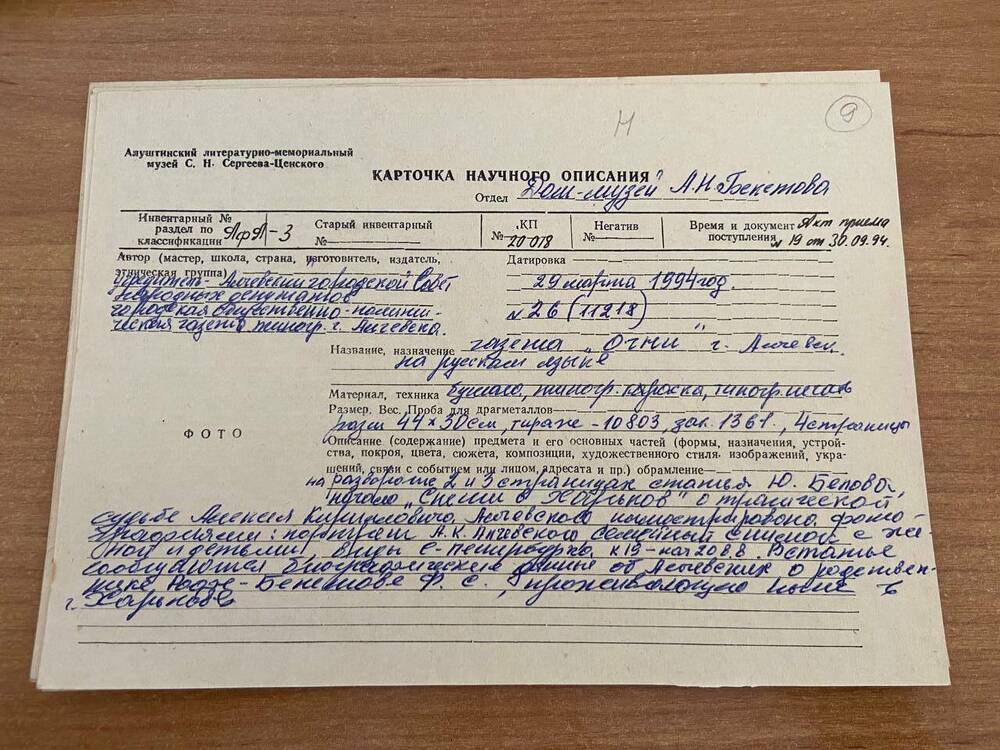 Н
9
Алуштинский литературно-мемориальный
музей С. Н. Сергеева-Ценского
КАРТОЧКА НАУЧНОГО ОПИСАНИЯ
Отдел Дом-музей А.Н.Бекетова
Инвентарный №
раздел по
классификации АфЛ-3
Старый инвентарный
№
КП
№ 20 018
Негатив
№
Время и документ Акт приема
поступления № 19 от 30.09.94.
Автор (мастер, школа, страна, изготовитель, издатель,
этническая группа)
учредитель - Алчевский городской Совет
народных депутатов
городская общественно-полити-
ческая газета типогр. г. Алчевска.
Датировка
29 марта 1994 год.
№ 26 (11218)
Название, назначение газета „Огни" г. Алчевск.
на русском языке
Материал, техника бумага, типогр. краска, типогр. печать
Размер. Вес. Проба для драгметаллов
разм 44×30 см, тираж - 10803, зак. 1361, 4 страницы
ФОТО
Описание (содержание) предмета и его основных частей (формы, назначения, устрой-
ства, покроя, цвета, сюжета, композиции, художественного стиля, изображений, укра-
шений, связи с событием или лицом, адресата и пр.) обрамление
на развороте 2 и 3 страницах статья Ю. Белова,
начало в Харьков" о трагической
судьбе Алексея Кирилловича Алчевского иллюстрирована фото-
графиями: портрет А.К. Алчевского семейный снимок с же-
ной и детьми, виды С-Петербурга к 19 - нач 20 в.в. В статье
сообщаются биографические данные об Алчевских о родствен-
нике Рофе-Бекетове Ф. С., проживающую ныне в
г. Харькове